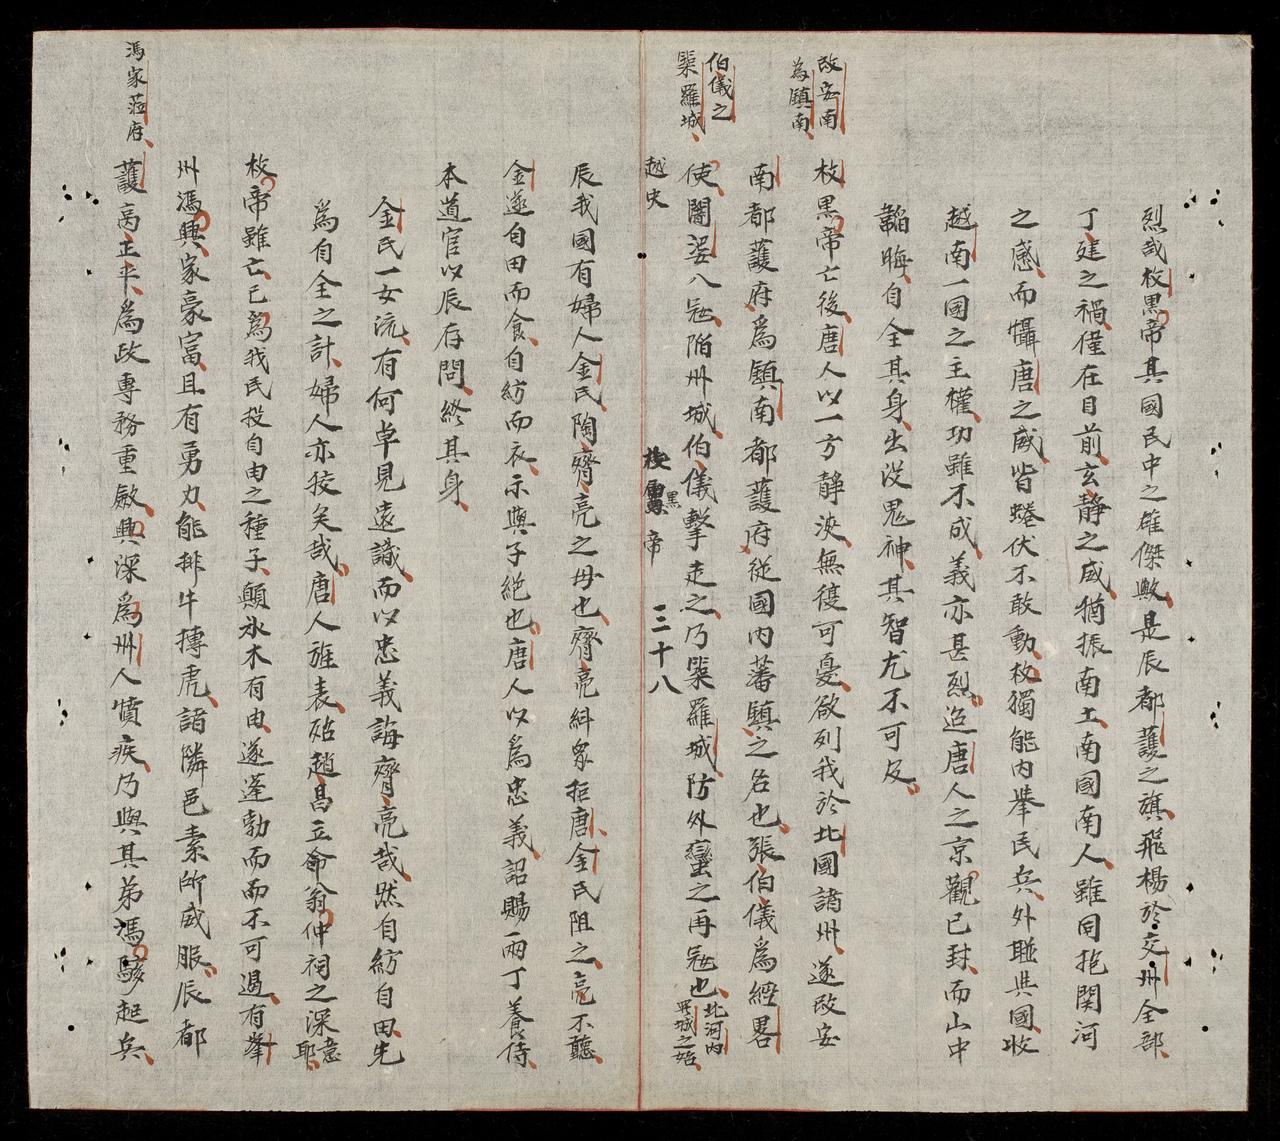 烈哉枚黒帝其國民中之雄傑歟是辰都護之旗飛楊於交州全部
丁建之禍僅在目前玄靜之威猶振南土南國南人雖同抱関河
之感而懾唐之威皆蜷伏不敢動枚獨能内挙民兵外聯與國收
越南一國之主權功雖不成義亦甚烈迨唐人之京觀已封而山中
韜晦自全其身出沒鬼神其智尤不可及
改安南
為鎮南
枚黒帝亡後唐人以一方靜浹無復可憂啟列我於北國諸州遂改安
南都護府為鎮南都護府從國内蕃鎮之名也張伯儀為經畧
伯儀之
築羅城
使闍婆入寇陷州城伯儀擊走之乃築羅城防外蠻之再寇也北河内
畀城之始
越史
枚黒帝
三十八
辰我國有婦人金氏陶齊亮之母也齊亮糾眾拒唐金氏阻之亮不聽
金遂自田而食自紡而衣示與子絶也唐人以為忠義詔賜兩丁養侍
本道官以辰存問終其身
金氏一女流有何卓見遠識而以忠義誨齊亮哉然自紡自田先
為自全之計婦人亦狡矣哉唐人旌表殆趙昌立命翁仲祠之深意
耶
枚帝雖亡已為我民投自由之種子顛氷木有由遂蓬勃而而不可遏有挙
州馮興家豪富且有勇力能排牛搏虎諸隣邑素所威服辰都
馮家蒞府
護高正平為政專務重斂興深為州人憤疾乃與其弟馮駭起兵